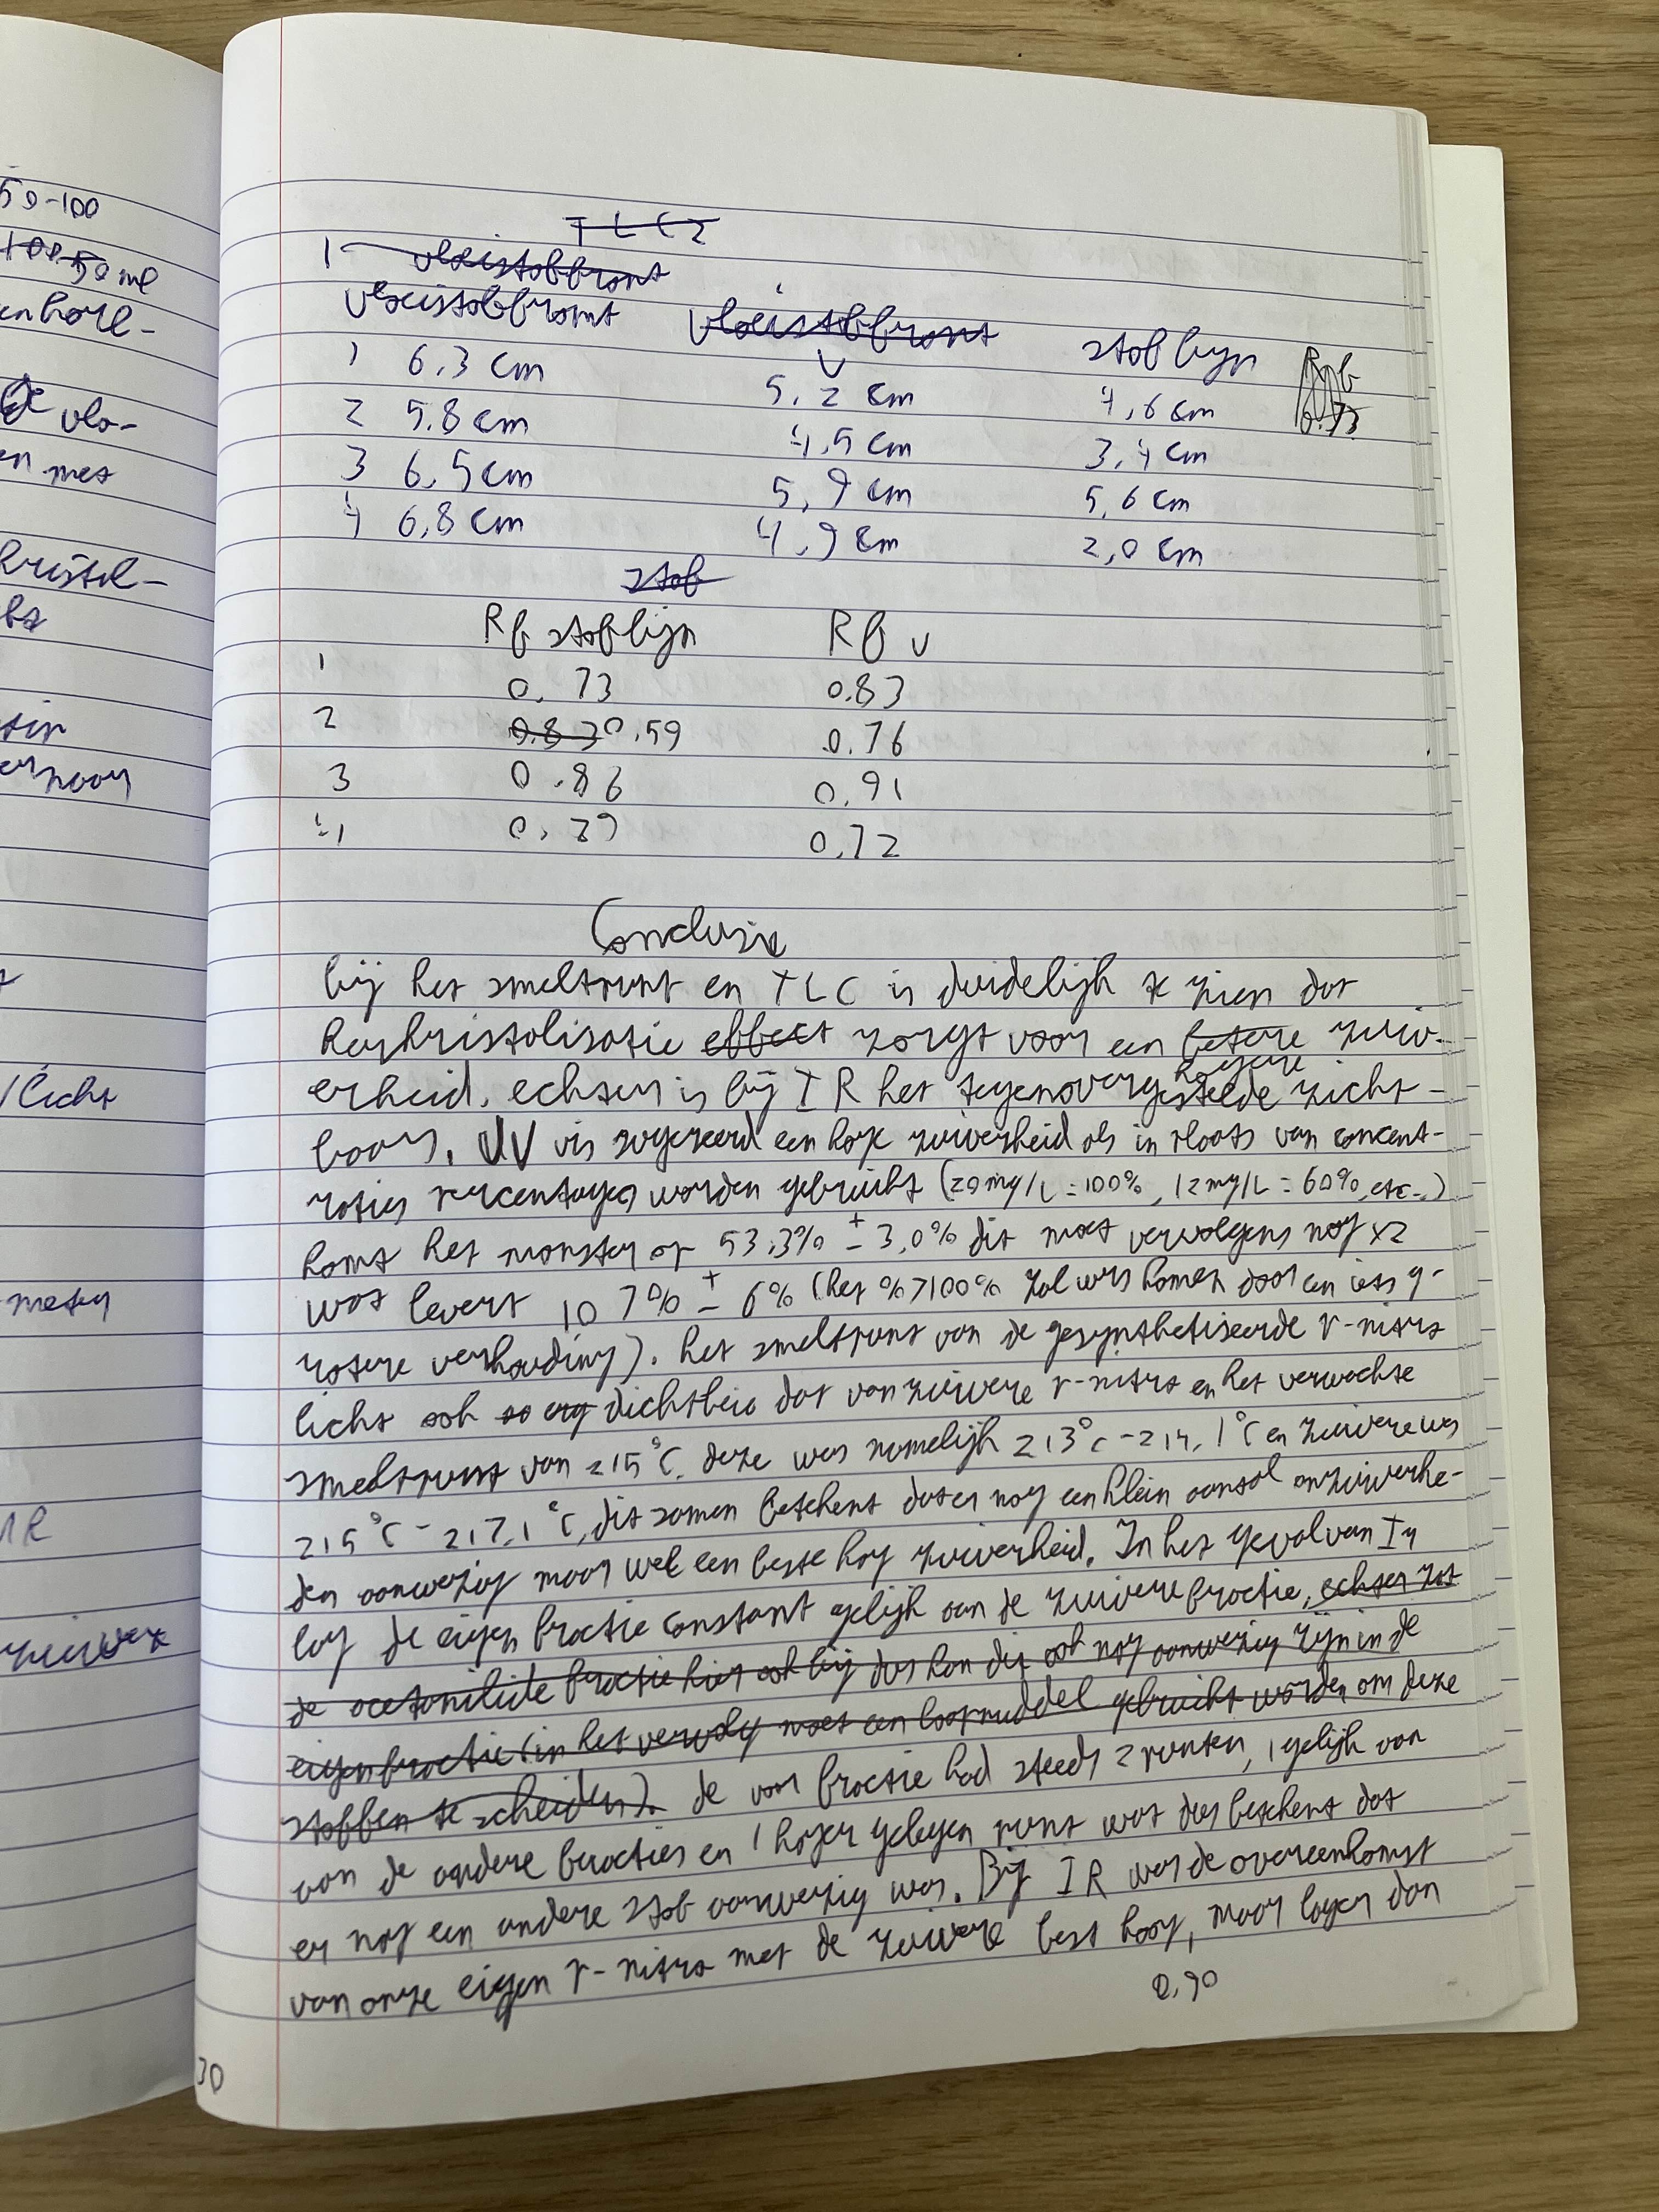 50-100
100 50 ml
enhoel-
de vlo-
en met
kristal-
1
T L C 2
vloeistoffront
vloeistoffront vloeistoffront stof lijn Rf
v 0.73
1 6,3 cm 5,2 cm 4,6 cm
2 5.8 cm 4,5 cm 3,4 cm
3 6,5 cm 5,9 cm 5,6 cm
4 6,8 cm 4,9 cm 2,0 cm
stof
Rf stoflijn Rf v
1 0.73 0.83
2 0.83 0.59 0.76
3 0.86 0,91
4 0,29 0,72
Conclusie
bij het smeltpunt en TLC is duidelijk te zien dat
herkristalisatie effect zorgt voor een betere zuiv-
hogere
erheid. echter is bij IR het tegenovergestelde zicht-
baar. UV vis suggereerd een hoge zuiverheid als in plaats van concent-
raties percentages worden gebruikt (20mg/L=100%, 12mg/L=60%, etc..)
komt het monster op 53,3% ± 3,0% dit moet vervolgens nog x2
wat levert 107% ± 6% (het %>100% zal wrs komen door een iets g-
rotere verhouding). het smeltpunt van de gesynthetiseerde p-nitro
licht ook zo erg dichtbij dat van zuivere p-nitro en het verwachte
smeltpunt van 215°C. deze was namelijk 213°C-214,1°C en zuivere was
215°C-217,1°C, dit samen betekent dat er nog een klein aantal onzuiverhe-
den aanwezig maar wel een beste hog zuiverheid. In het geval van
lag de eigen fractie constant gelijk aan de zuivere fractie, echter zat
de acetanilide fractie hier ook bij dus kan dit ook nog aanwezig zijn in de
eigen fractie (in het vervolg moet een loopmiddel gebruikt worden om deze
stoffen te scheiden). de voor fractie had steeds 2 punten, 1 gelijk van
aan de andere fracties en 1 hoger gelegen punt wat dus betekent dat
er nog een andere stof aanwezig was. Bij IR was de overeenkomst
van onze eigen p-nitro met de zuivere best hoog, maar lager dan
0,90
/licht
meter
zuivere
30